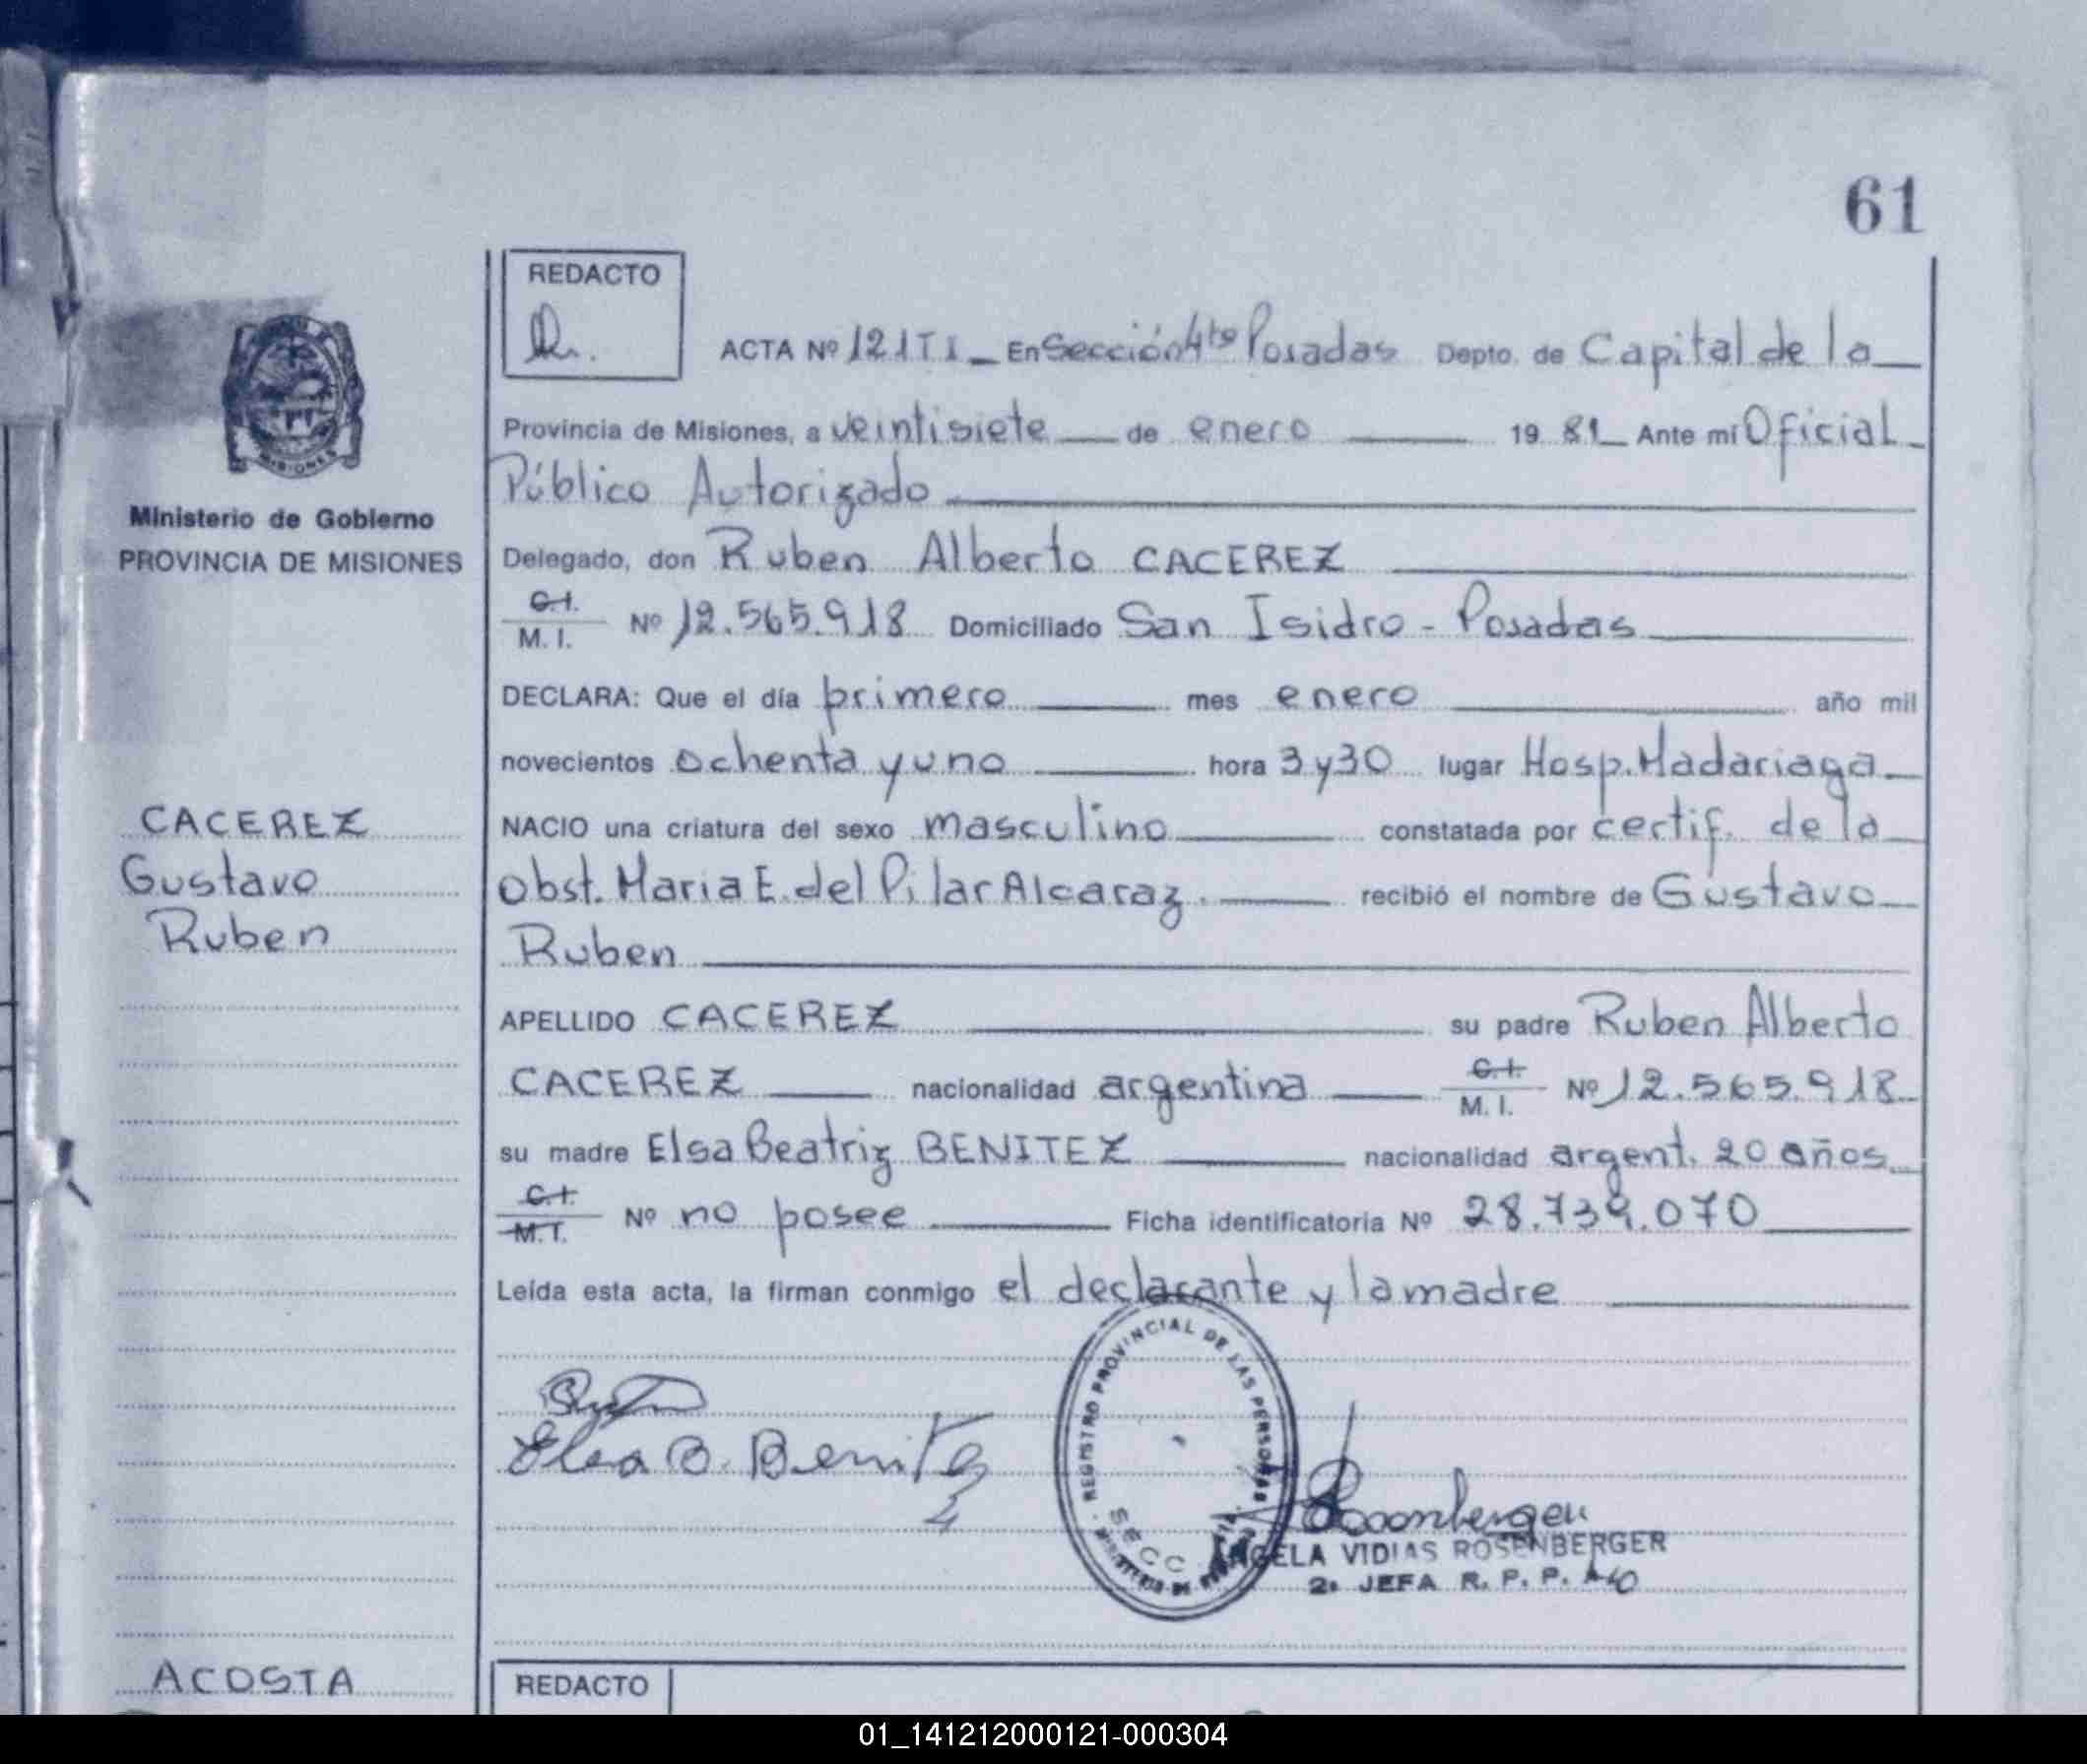 61
REDACTO
ACTA Nº 121 T I _ En Sección 4ta Posadas Depto. de Capital de la
Provincia de Misiones, a veintisiete de enero 19 81 Ante mí Oficial
Público Autorizado
Ministerio de Gobierno
PROVINCIA DE MISIONES
Delegado, don Ruben Alberto CACEREZ
C.I.
M. I. Nº 12.565.918 Domiciliado San Isidro - Posadas
DECLARA: Que el día primero mes enero año mil
novecientos ochenta y uno hora 3 y 30 lugar Hosp. Madariaga
CACEREZ
Gustavo
Ruben
NACIO una criatura del sexo masculino constatada por certif. de la
Obst. Maria E. del Pilar Alcaraz. recibió el nombre de Gustavo
Ruben
APELLIDO CACEREZ su padre Ruben Alberto
CACEREZ nacionalidad argentina C.I.
M. I. Nº 12.565.918
su madre Elsa Beatriz BENITEZ nacionalidad argent. 20 años
C.I.
M.I. Nº no posee Ficha identificatoria Nº 28.739.070
Leída esta acta, la firman conmigo el declarante y la madre
REGISTRO PROVINCIAL DE LAS PERSONAS
SECC
Elsa B. Benitez
Rosenberger
ANGELA VIDIAS ROSENBERGER
2a JEFA R. P. P.
ACOSTA
REDACTO
01_141212000121-000304